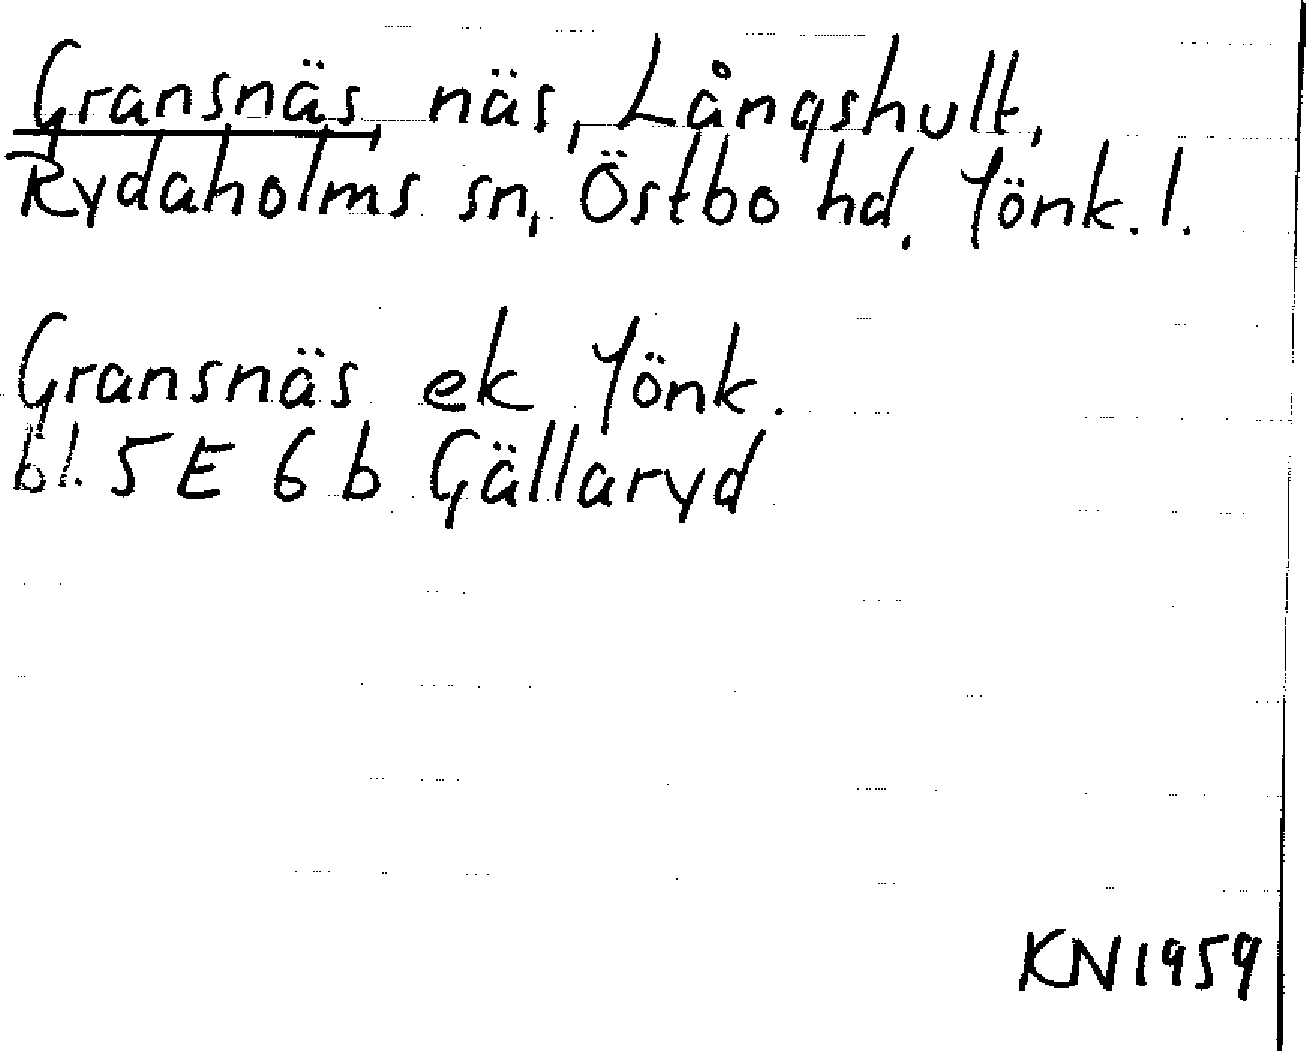 Gransnäs, näs, Långshult,
Rydaholms sn, Östbo hd. Jönk. l.
Gransnäs ek Jönk.
bl. 5 E 6 b Gällaryd
KN 1959